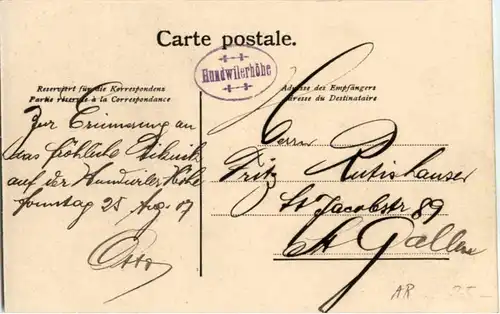 Carte postale.
Hundwilerhöhe
Reserviert für die Korrespondenz
Partie réservée à la Correspondance
Adresse des Empfängers
Adresse du Destinataire
Zur Erinnerung an
das fröhliche Picknick
auf der Hundwiler Höhe
Sonntag 25 Aug. 07
Otto
Herrn
Fritz Rutishauser
St. Jacobstr 89
St Gallen
AR 25.-